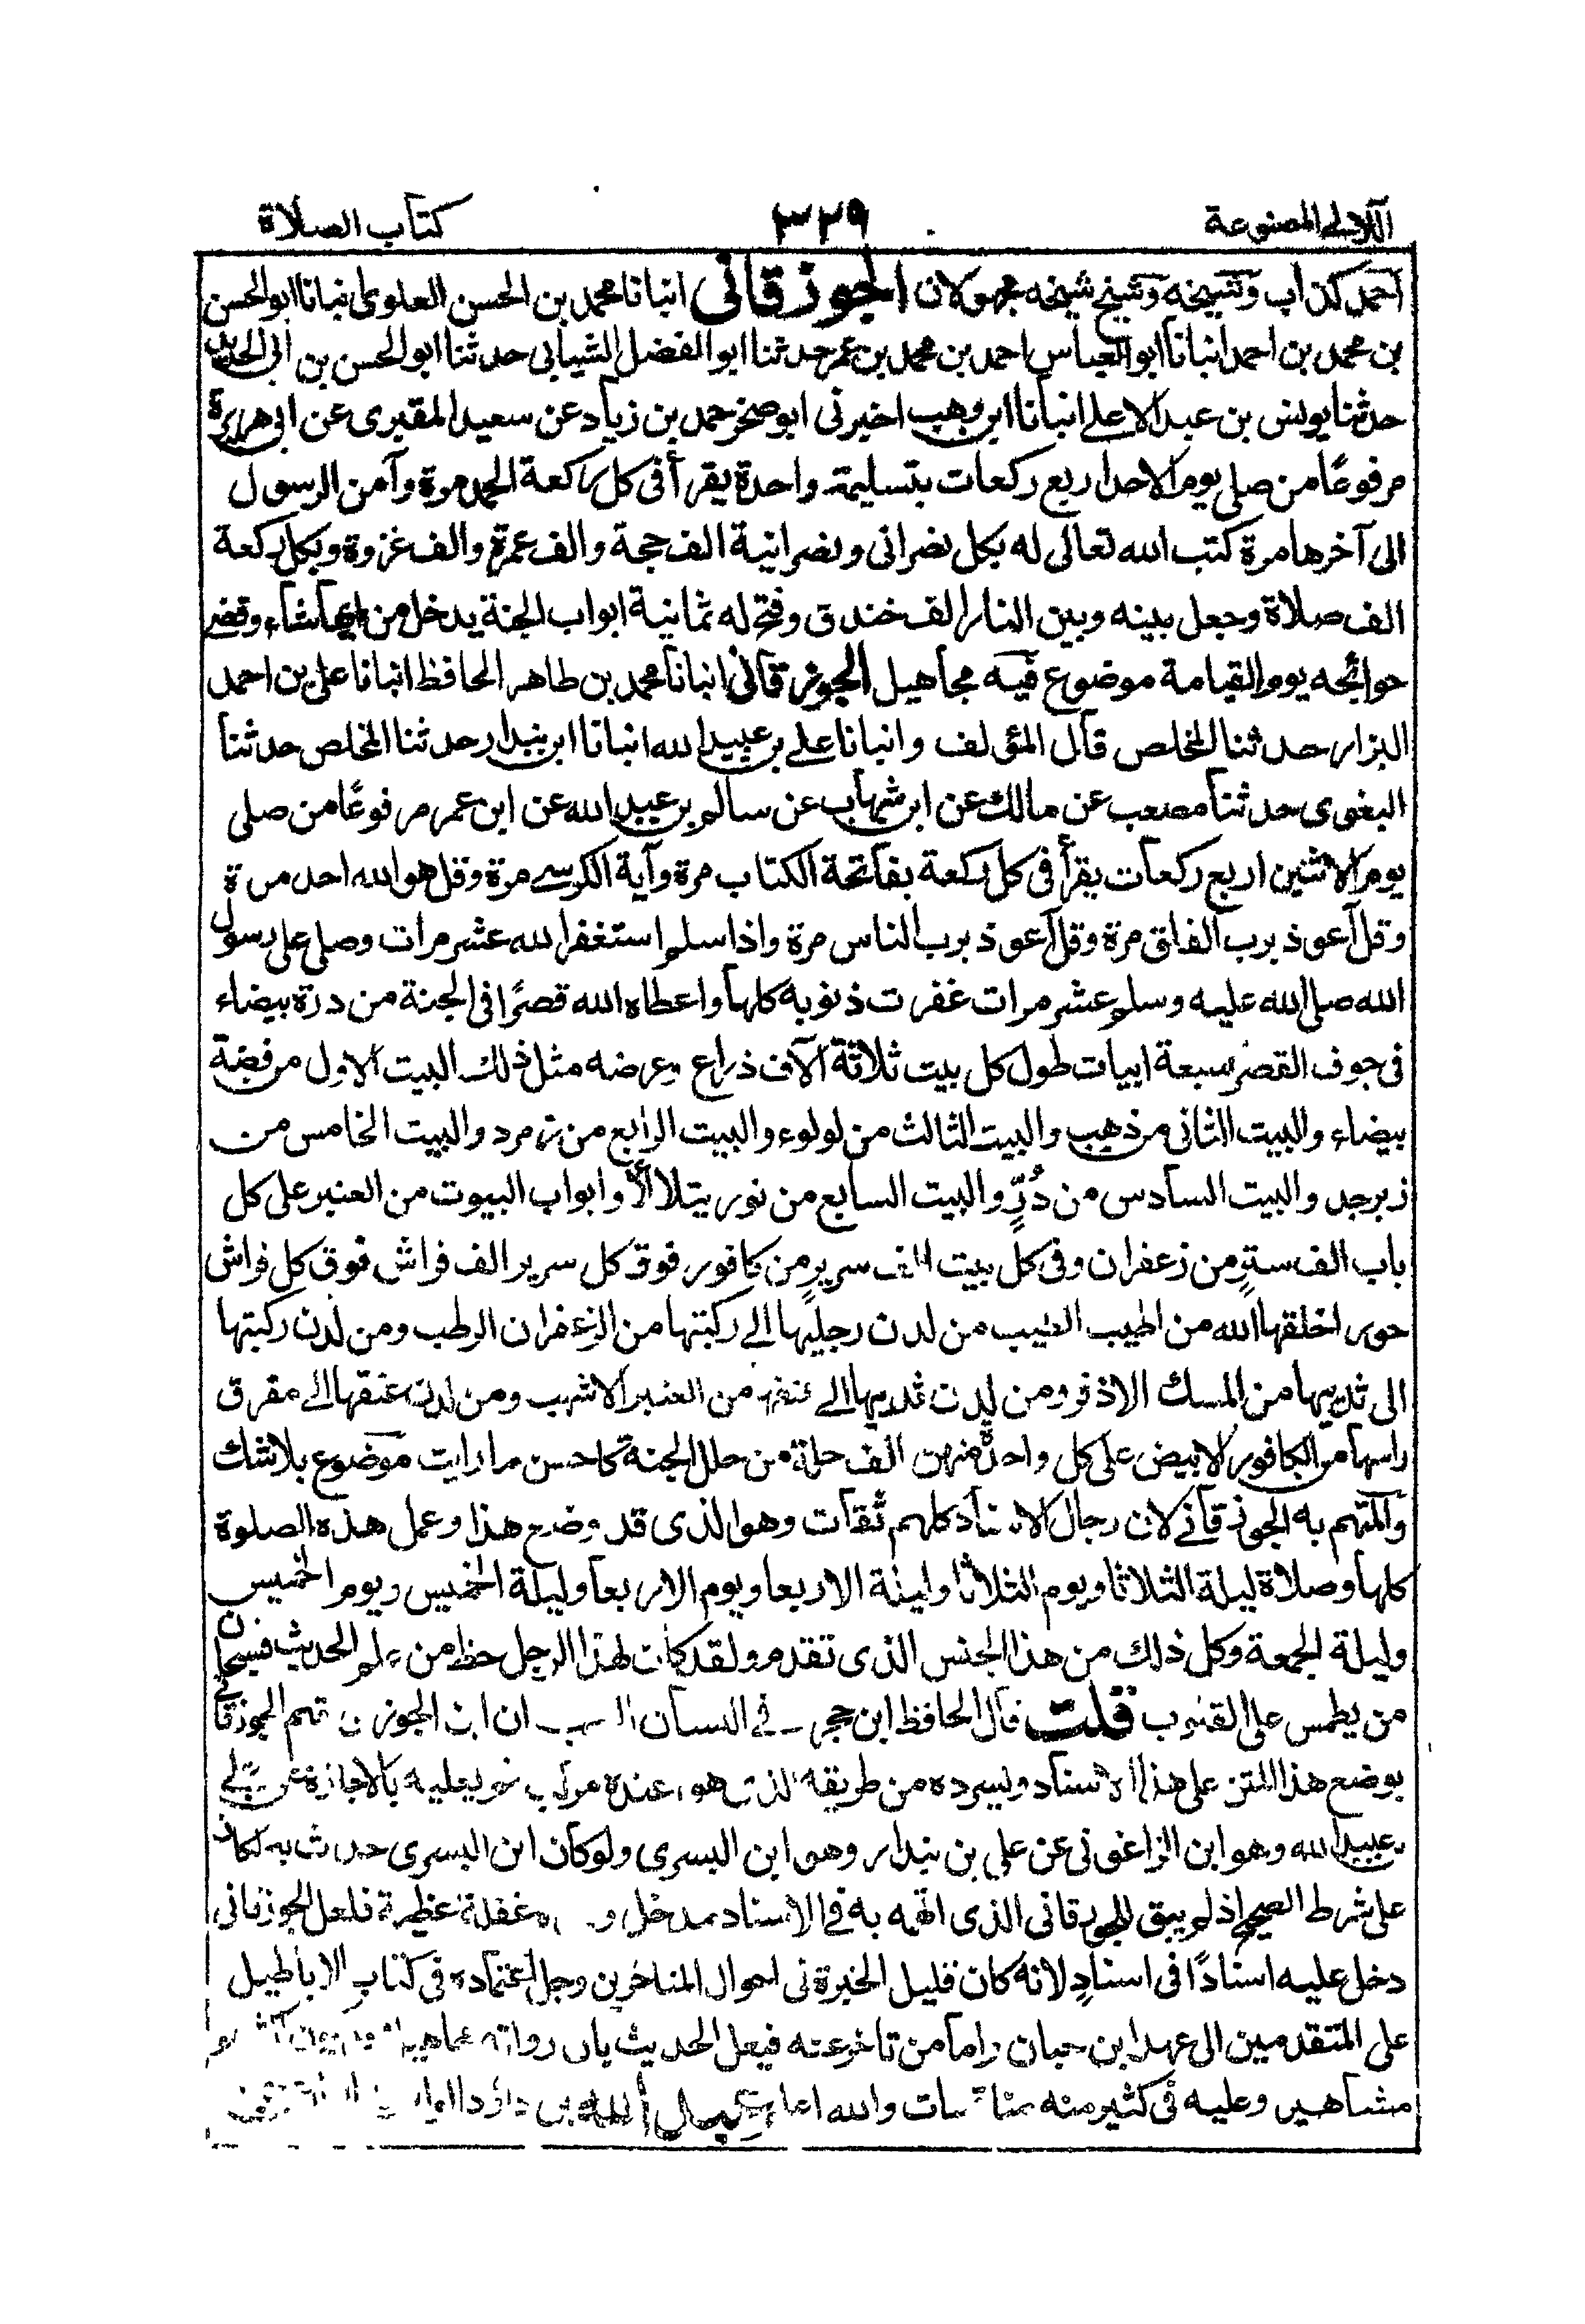 اللآلى المصنوعة ٣٢٩ كتاب الصلاة
احمد كذاب وشيخه وشيخ شيخه مجهولان الجوزقانى انبانا محمد بن الحسن العلوى انبانا ابو الحسن
بن محمد بن احمد انبانا ابو العباس احمد بن محمد بن عمر حدثنا ابو الفضل الشيبانى حدثنا ابو الحسن بن ابى الحديد
حدثنا يونس بن عبد الاعلے انبانا ابن وهب اخبرنى ابو صخر حمد بن زياد عن سعيد المقبرى عن ابى هريرة
مرفوعًا من صلى يوم الاحد اربع ركعات بتسليمة واحدة يقرأ فى كل ركعة الحمد مرة وآمن الرسول
الى آخرها مرة كتب الله تعالى له بكل نصرانى ونصرانية الف حجة والف عمرة والف غزوة وبكل ركعة
الف صلاة وجعل بينه وبين النار الف خندق وفتح له ثمانية ابواب الجنة يدخل من ايها شاء وقضى
حوائجه يوم القيامة موضوع فيه مجاهيل الجوزقانى انبانا محمد بن طاهر الحافظ انبانا على بن احمد
البزار حدثنا المخلص قال المؤلف وانبانا علے بن عبيد الله انبانا ابن بندار حدثنا المخلص حدثنا
البغوى حدثنا مصعب عن مالك عن ابن شهاب عن سالم بن عبيد الله عن ابن عمر مرفوعًا من صلى
يوم الاثنين اربع ركعات يقرأ فى كل ركعة بفاتحة الكتاب مرة وآية الكرسے مرة وقل هو الله احد مرة
وقل آعوذ برب الفلق مرة وقل آعوذ برب الناس مرة واذا سلم استغفر الله عشر مرات وصلى على رسول
الله صلى الله عليه وسلم عشر مرات غفرت ذنوبه كلها واعطاه الله قصرًا فى الجنة من درة بيضاء
فى جوف القصر سبعة ابيات طول كل بيت ثلاثة آلاف ذراع وعرضه مثل ذلك البيت الاول من فضة
بيضاء والبيت الثانى من ذهب والبيت الثالث من لولوء والبيت الرابع من زمرد والبيت الخامس من
زبرجد والبيت السادس من دُرٍّ والبيت السابع من نور يتلالأ وابواب البيوت من العنبر على كل
باب الف سترٍ من زعفران وفى كل بيت الف سريرٍ من كافور فوق كل سرير الف فراش فوق كل فراش
حورا خلقها الله من اطيب الطيب من لدن رجليها الے ركبتها من الزعفران الرطب ومن لدن ركبتها
الى ثدييها من المسك الاذفر ومن لدن ثدييها الے عنقها من العنبر الاشهب ومن لدن عنقها الے مفرق
راسها من الكافور الابيض على كل واحدة منهن الف حلة من حلل الجنة كاحسن ما رايت موضوع بلا شك
والمتهم به الجوزقانے لان رجال الاسناد كلهم ثقات وهو الذى قد وضع هذا وعمل هذه الصلوة
كلها وصلاة ليلة الثلاثا ويوم الثلاثا وليلة الاربعا ويوم الاربعا وليلة الخميس ويوم الخميس
وليلة الجمعة وكل ذلك من هذا الجنس الذى تقدم ولقد كان لهذا الرجل حظ من علم الحديث فسبحان
من يطمس على القلوب قلت قال الحافظ ابن حجر فے اللسان ان ابن الجوزى الجوزقانے
بوضع هذا المتن على هذا الاسناد ويسرده من طريقه الذى هو عنده مركب بالاجازة عن على
بن عبيد الله وهو ابن الزاغونى عن على بن بندار وهو ابن البسرى ولو كان ابن البسرى حدث به لكان
على شرط الصحيح اذ لم يبق للجوزقانى الذى اتهمه به فے الاسناد مدخل غفلة عظيمة فلعل الجوزقانى
دخل عليه اسنادًا فى اسنادٍ لانه كان قليل الخبرة فى احوال المتاخرين وجل اعتماده فى كتاب الاباطيل
على المتقدمين الى عهد ابن حبان واما من تاخر عنه فيعل الحديث بان رواته مجاهيل
مشاهير وعليه فى كثير منه والله